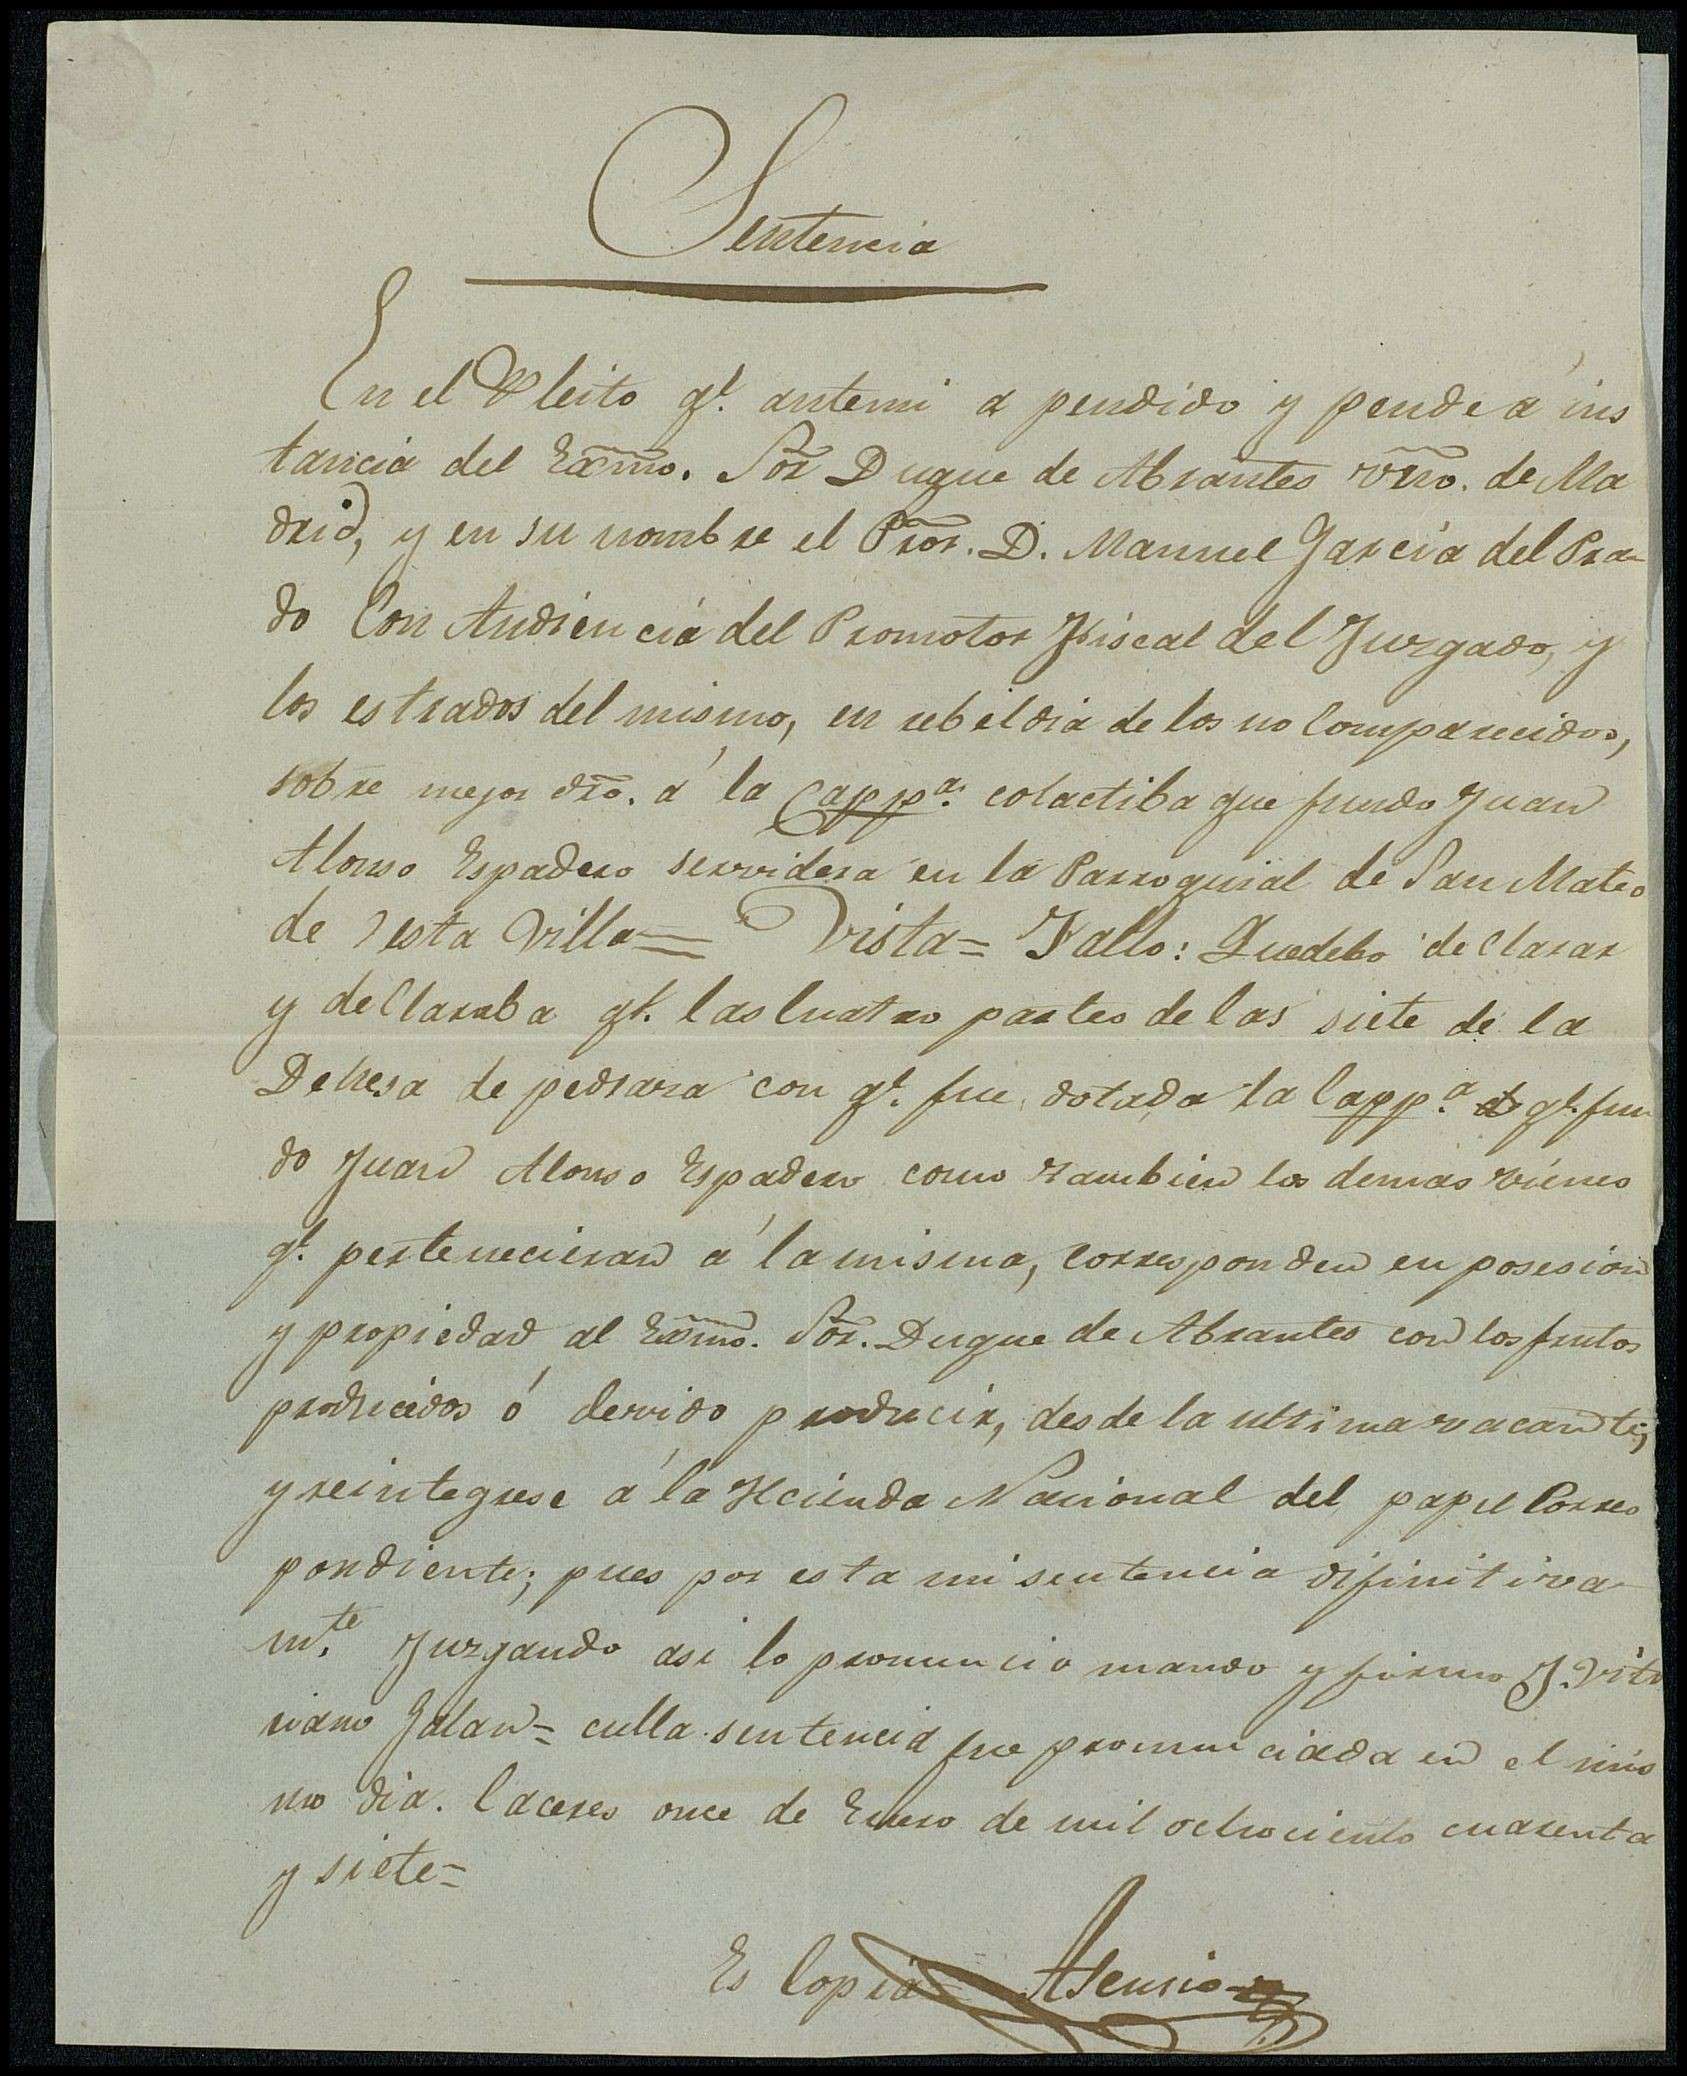 Sentencia
En el Pleito q.e antemi a pendido y pende á ins
tancia del Exmo. Sor Duque de Abrantes vno. de Ma
drid, y en su nombre el Pror. D. Manuel Garcia del Pra-
do Con Audiencia del Promotor Fiscal del Juzgado, y
los estrados del mismo, en rebeldia de los no Comparecidos,
sobre mejor dro. á la Capp.a colactiba que fundo Juan
Alonso Espadero servidera en la Parroquial de San Mateo
de esta Villa= Vista= Fallo: Quedebo declarar
y declaraba q.e las Cuatro partes de las siete de la
Dehesa de pedraza con q.e fue dotada la Capp.a q.e fun
do Juan Alonso Espadero como tambien los demas vienes
q.e pertenecieran á la misma, corresponden en posesion
y propiedad al Exmo. Sor. Duque de Abrantes con los frutos
producidos ó devido producir, desde la ultima vacante;
y reintegrese á la Hcienda Nacional del papel Corres
pondiente; pues por esta mi sentencia difinitiva-
m.te Juzgando asi lo pronuncio mando y firmo J. Vitu
riano Galan= culla sentencia fue pronunciada en el mis
mo dia. Caceres once de Enero de mil ochociento cuarenta
y siete=
Es Copia Asensio